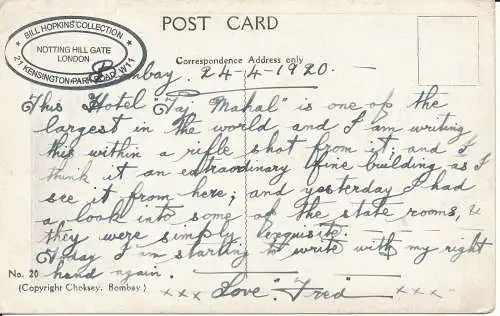 POST CARD
★ BILL HOPKINS COLLECTION ★
NOTTING HILL GATE
LONDON
21 KENSINGTON PARK ROAD W11
Correspondence Address only
Bombay. 24-4-1920. —
This Hotel "Taj Mahal" is one of the
largest in the world and I am writing
this within a rifle shot from it; and I
think it an extraordinary fine building as I
see it from here; and yesterday I had
a look into some of the state rooms, &
they were simply "exquisite."
Today I am starting to write with my right
hand again.
No. 20
(Copyright Choksey, Bombay.)
xxx Love. "Fred" — xxx —